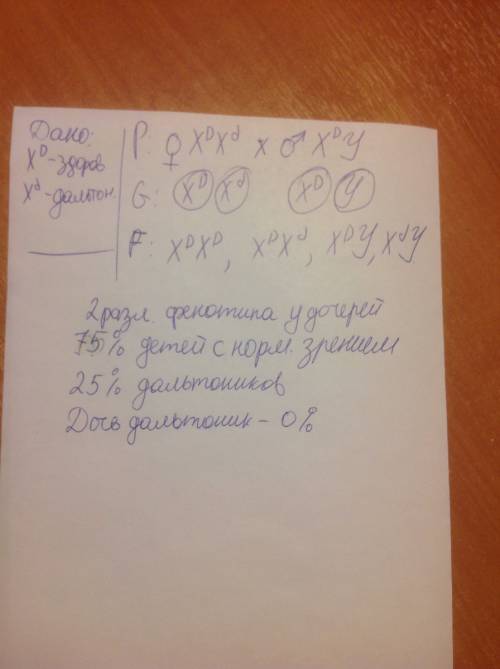 Дано:
X^D-здоров
X^d-дальтон.
P: ♀ X^D X^d x ♂ X^D Y
G: X^D X^d X^D Y
F: X^D X^D, X^D X^d, X^D Y, X^d Y
2 разл. фенотипа у дочерей
75% детей с норм. зрением
25% дальтоников
Дочь дальтоник - 0%